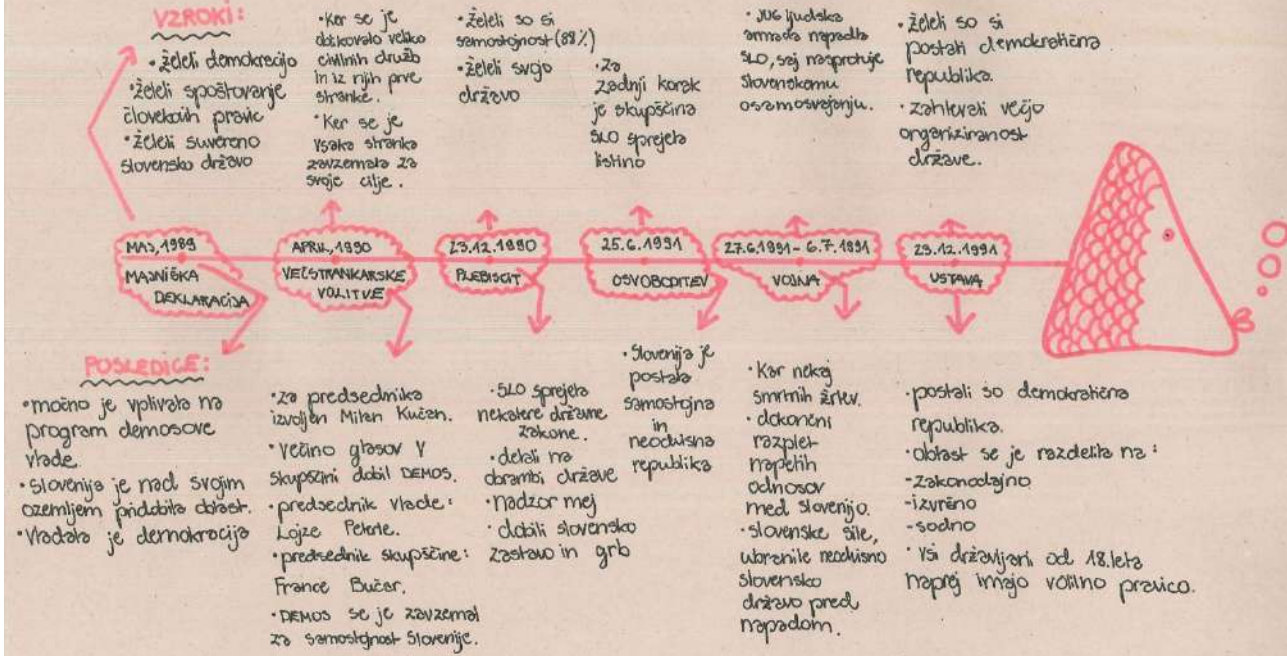 VZROKI:
• želeli demokracijo
• želeli spoštovanje
človekovih pravic
• želeli suvereno
slovensko državo
• Ker se je
oblikovalo veliko
civilnih družb
in iz njih prve
stranke.
• Ker se je
vsaka stranka
zavzemala za
svoje cilje.
• želeli so si
samostojnost (88%)
• želeli svojo
državo
• za
zadnji korak
je skupščina
SLO sprejela
listino
• JUG ljudska
armada napadla
SLO, saj nasprotuje
slovenskomu
osamosvajanju.
• želeli so si
postati demokratična
republika.
• zahtevali večjo
organiziranost
države.
MAJ, 1989
MAJNIŠKA
DEKLARACIJA
APRIL, 1990
VEČSTRANKARSKE
VOLITVE
23.12.1990
PLEBISCIT
25.6.1991
OSVOBODITEV
27.6.1991 - 6.7.1991
VOJNA
23.12.1991
USTAVA
POSLEDICE:
• močno je vplivala na
program demosove
vlade.
• Slovenija je nad svojim
ozemljem pridobila oblast.
• Vladala je demokracija
• za predsednika
izvoljen Milan Kučan.
• večino glasov v
skupščini dobil DEMOS.
• predsednik vlade:
Lojze Peterle.
• predsednik skupščine:
France Bučar.
• DEMOS se je zavzemal
za samostojnost Slovenije.
• SLO sprejela
nekatere državne
zakone.
• delali na
obrambi države
• nadzor mej
• dobili slovensko
zastavo in grb
• Slovenija je
postala
samostojna
in
neodvisna
republika
• Kar nekaj
smrtnih žrtev.
• dokončni
razplet
napetih
odnosov
med slovenijo.
• slovenske sile,
ubranile neodvisno
slovensko
državo pred
napadom.
• postali so demokratična
republika.
• oblast se je razdelila na:
- zakonodajno
- izvršno
- sodno
• vsi državljani od 18.leta
naprej imajo volilno pravico.